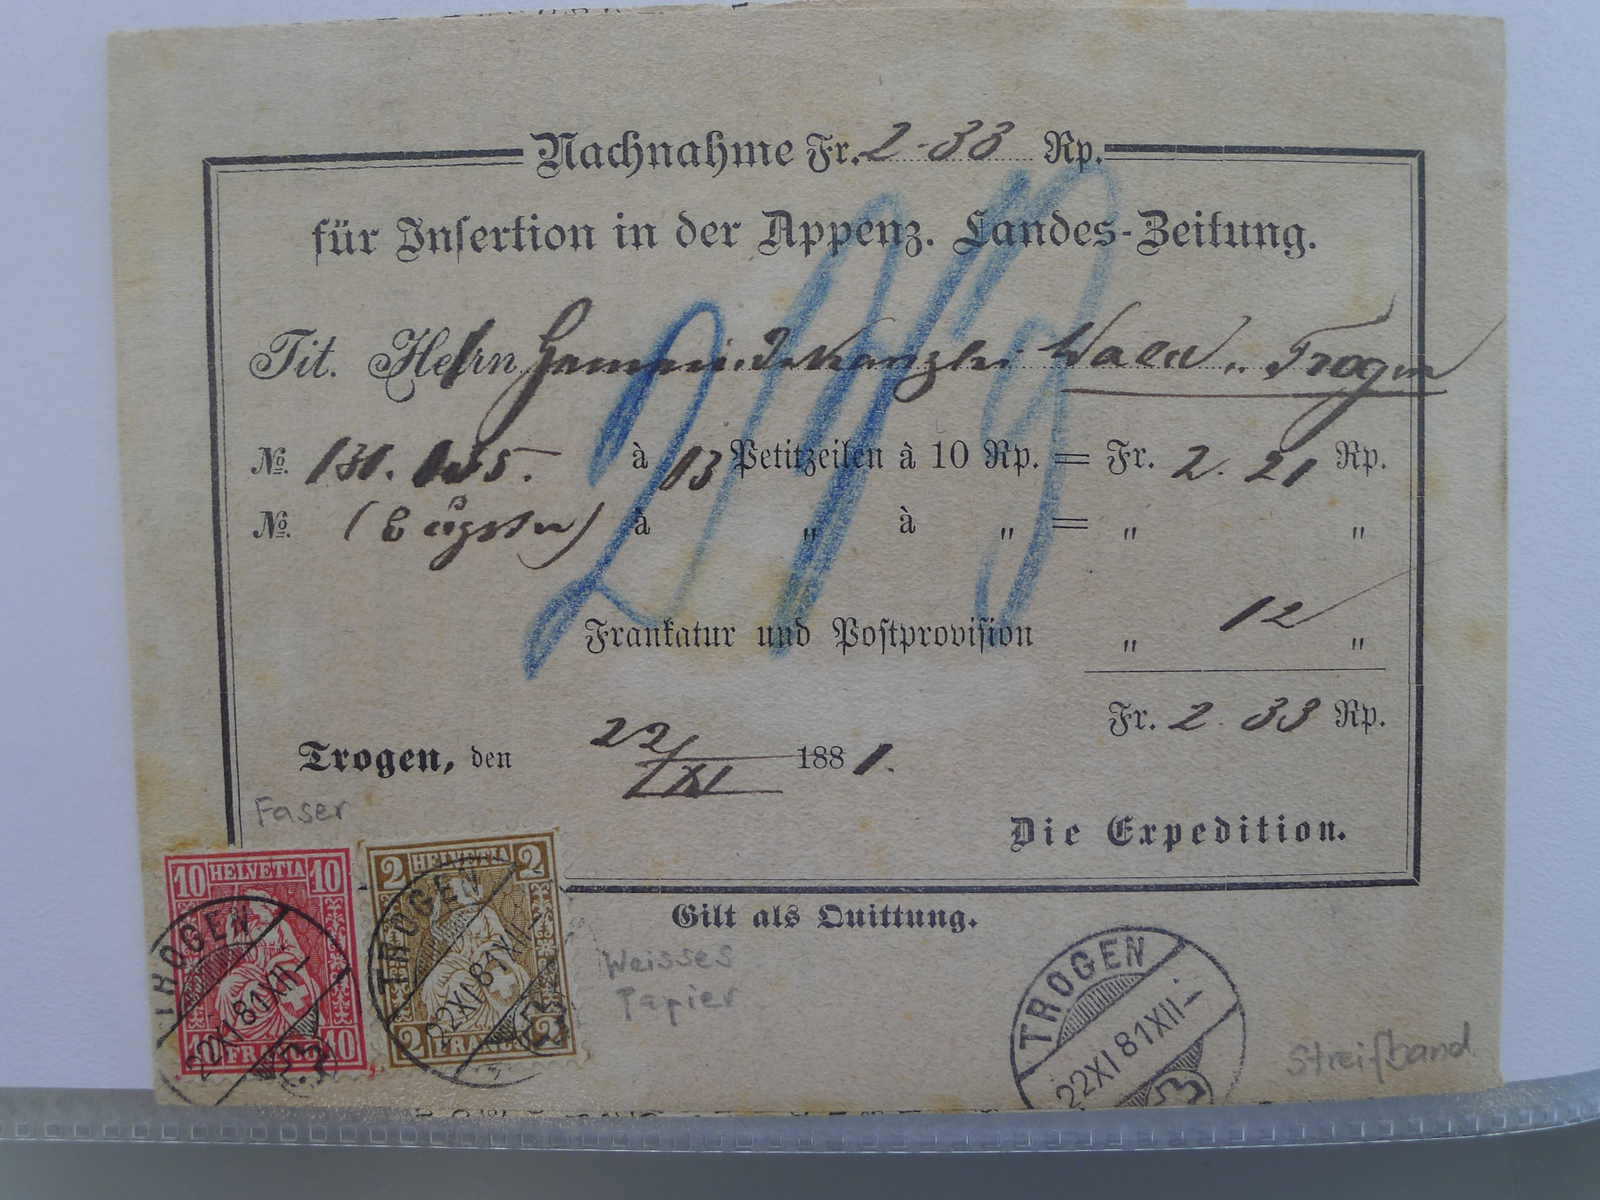 Nachnahme Fr. 2-33 Rp.
für Insertion in der Appenz. Landes-Zeitung.
Tit. Herrn Gemeindekanzlei Wald b. Trogen
No. 131. 135. à 13 Petitzeilen à 10 Rp. = Fr. 2. 21 Rp.
No. à " à " = " "
Frankatur und Postprovision " 12 "
Fr. 2. 33 Rp.
Trogen, den 22/XI 1881.
Faser
Die Expedition.
10 HELVETIA 10
10 FRANCO 10
2 HELVETIA 2
2 FRANCO 2
TROGEN
22XI81XII-
TROGEN
22XI81XII-
Gilt als Quittung.
Weisses
Papier
TROGEN
22XI81XII-
Streifband